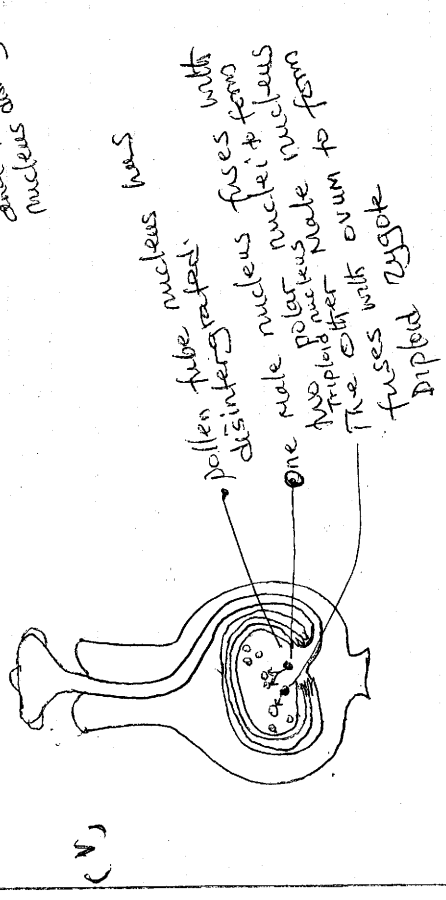 nucleus and
pollen tube nucleus has
disintergrated.
One male nucleus fuses with
two polar nuclei to form
Triploid nucleus
The other male nucleus
fuses with ovum to form
Diploid zygote
(V)